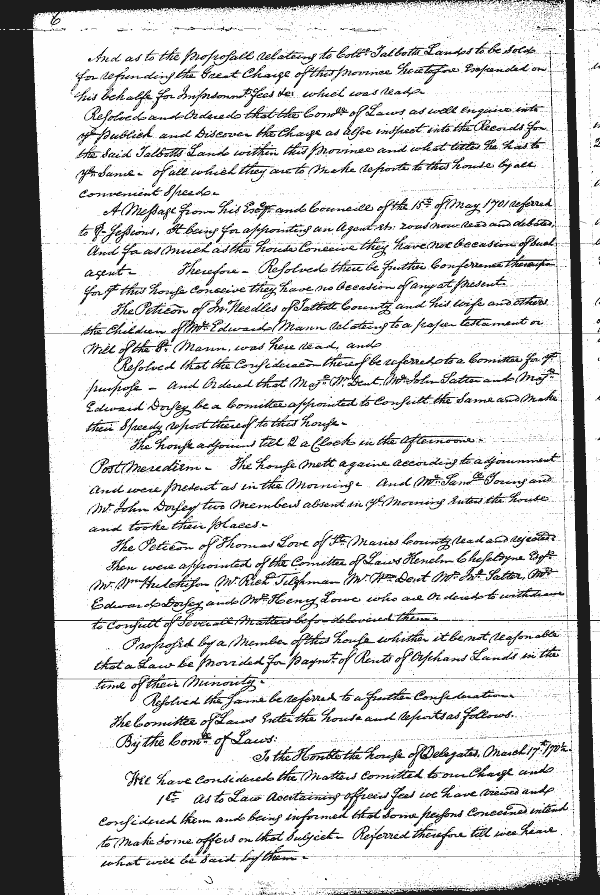 6
And as to the proposall relateing to Coll.º Talbotts Lands to be sold
for refunding the Great Charge of this province heretofore Expended on
his behalfe for Imprisonmt fees &c which was read.
Resolved and Ordered that the Comtte of Laws as well enquire into
ye publick and Discover the Charge as also inspect into the Records for
the Said Talbotts Lands within this province and what title he has to
ye Same - of all which they are to make reporte to this house by all
convenient Speed.
A Message from his Excy and Councill of the 15th of May 1701 referred
to ys Sessions, It being for appointing an Agent &c. was now read and debated,
And for as much as the house conceive they have not occasion of such
agent - Therefore - Resolved there be further Conference thereupon
for yt this house conceive they have no occasion of any at present.
The Peticon of Jno Needles of Talbott County and his wife and others
the Children of Mr Edward Mann relating to a paper testament or
Will of the sd Mann, was here read, and
Resolved that the Consideracon thereof be referred to a Comittee for yt
purpose - And Ordered that Majr Wm Dent Mr John Salter and Majr
Edward Dorsey be a Comittee appointed to Consult the Same and make
their Speedy report thereof to this house.
The house adjourns till 2 a Clock in the afternoone.
Post Meridiem - The house mett againe according to adjournment
and were present as in the Morning - And Mr Samll Young and
Mr John Dorsey two Members absent in ye Morning Enters the house
and tooke their places.
The Peticon of Thomas Love of St Maries County read and rejected
Then were appointed of the Comittee of Laws Kenelm Cheseldyne Esqr
Mr Wm Hutchison Mr Richd Tilghman Mr Wm Dent Mr Jno Salter, Mr
Edward Dorsey and Mr Henry Lowe who are Ordered to withdraw
to Consult of Severall Matters before delivered them.
Proposed by a Member of this house whither it be not reasonable
that a Law be provided for paymt of Rents of Orphans Lands in the
time of their Minority.
Resolved the Same be referred to a further Consideration.
The Comittee of Laws Enter the house and reports as follows.
By the Comtte of Laws:
To the Honble the house of Delegates, March 17th 1701/2.
Wee have considered the Matters Comitted to our Charge and
1st As to Law Ascertaining officers fees we have viewed and
considered them and being informed that Some persons concerned intend
to make Some offers on that Subject - Referred therefore till wee heare
what will be Said by them -